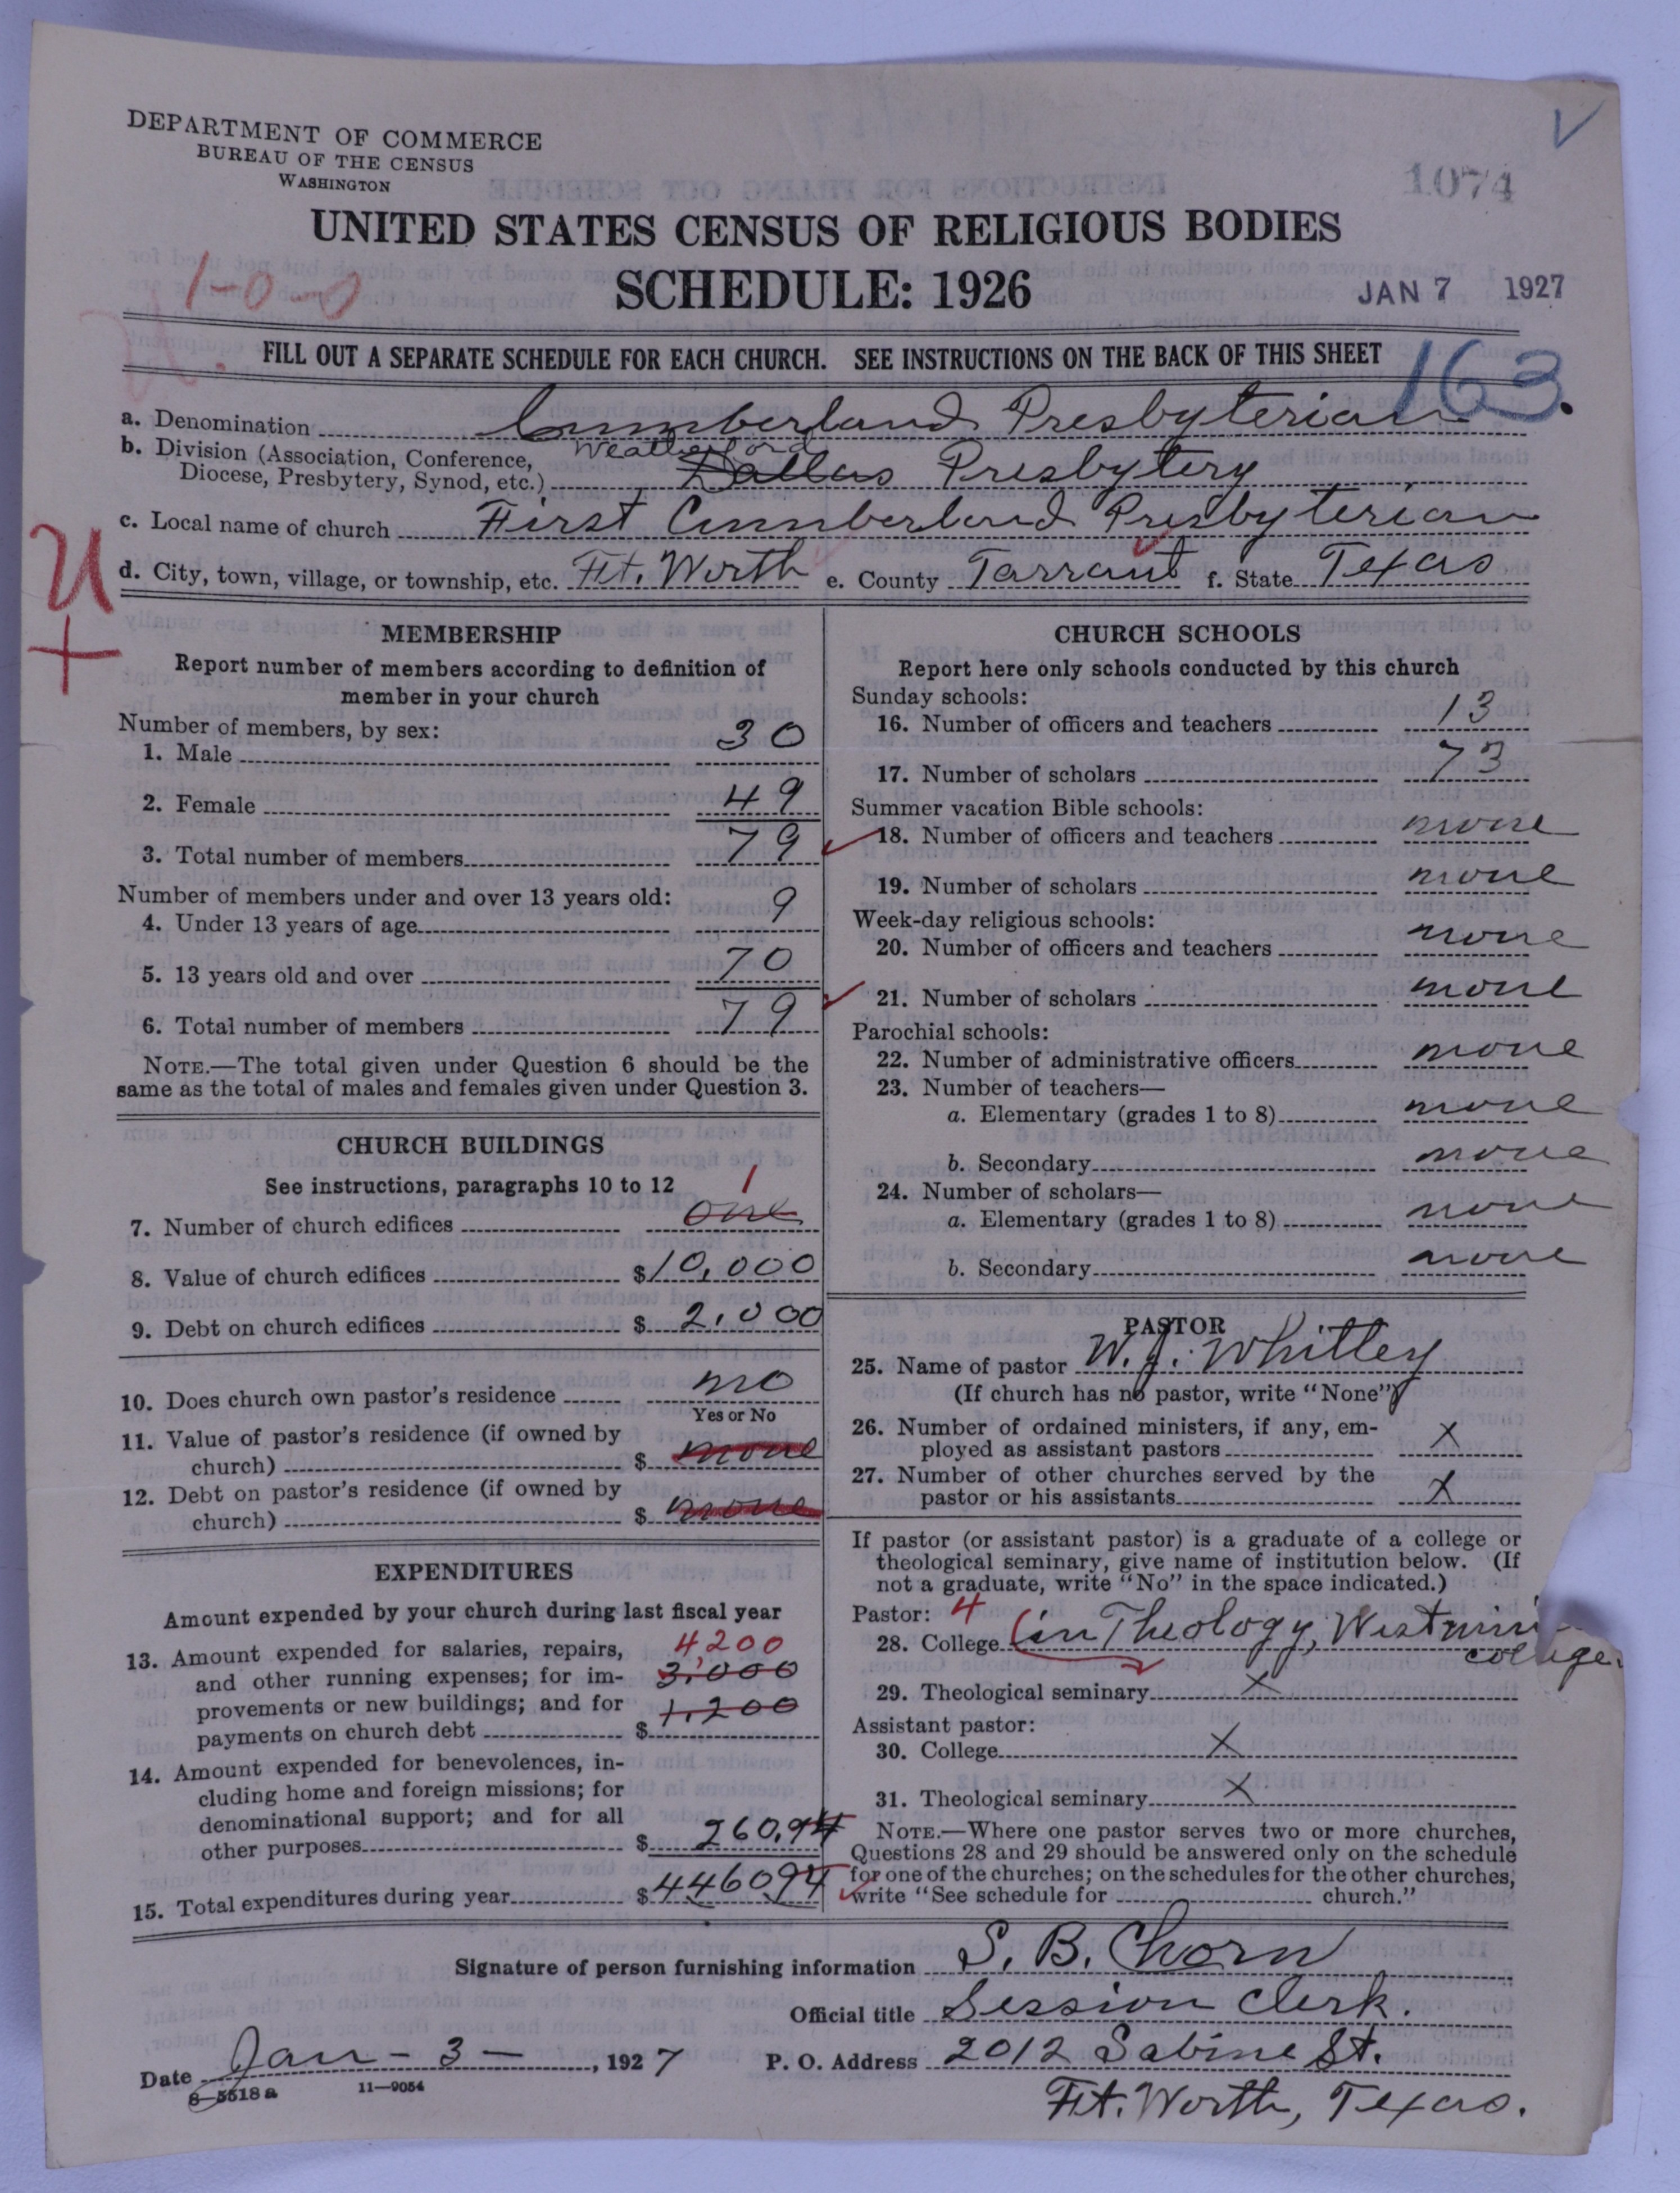 DEPARTMENT OF COMMERCE
BUREAU OF THE CENSUS
WASHINGTON
1074
UNITED STATES CENSUS OF RELIGIOUS BODIES
SCHEDULE: 1926
1-0-0
JAN 7 1927
FILL OUT A SEPARATE SCHEDULE FOR EACH CHURCH. SEE INSTRUCTIONS ON THE BACK OF THIS SHEET
163.
a. Denomination Cumberland Presbyterian
b. Division (Association, Conference, Weatherford
Diocese, Presbytery, Synod, etc.) Dallas Presbytery
c. Local name of church First Cumberland Presbyterian
d. City, town, village, or township, etc. Ft. Worth e. County Tarrant f. State Texas
U
+
MEMBERSHIP
Report number of members according to definition of
member in your church
Number of members, by sex:
1. Male 30
2. Female 49
3. Total number of members 79
Number of members under and over 13 years old:
4. Under 13 years of age 9
5. 13 years old and over 70
6. Total number of members 79
NOTE.—The total given under Question 6 should be the
same as the total of males and females given under Question 3.
CHURCH BUILDINGS
See instructions, paragraphs 10 to 12
1
7. Number of church edifices one
8. Value of church edifices $10,000
9. Debt on church edifices $2,000
10. Does church own pastor's residence no
Yes or No
11. Value of pastor's residence (if owned by
church) $ none
12. Debt on pastor's residence (if owned by
church) $ none
EXPENDITURES
Amount expended by your church during last fiscal year
13. Amount expended for salaries, repairs, 4200
and other running expenses; for im- 3,000
provements or new buildings; and for 1,200
payments on church debt $
14. Amount expended for benevolences, in-
cluding home and foreign missions; for
denominational support; and for all
other purposes $ 260.94
15. Total expenditures during year $ 4460.94
CHURCH SCHOOLS
Report here only schools conducted by this church
Sunday schools:
16. Number of officers and teachers 13
17. Number of scholars 73
Summer vacation Bible schools:
18. Number of officers and teachers none
19. Number of scholars none
Week-day religious schools:
20. Number of officers and teachers none
21. Number of scholars none
Parochial schools:
22. Number of administrative officers none
23. Number of teachers—
a. Elementary (grades 1 to 8) none
b. Secondary none
24. Number of scholars—
a. Elementary (grades 1 to 8) none
b. Secondary none
PASTOR
25. Name of pastor W. J. Whitley
(If church has no pastor, write "None")
26. Number of ordained ministers, if any, em-
ployed as assistant pastors X
27. Number of other churches served by the
pastor or his assistants X
If pastor (or assistant pastor) is a graduate of a college or
theological seminary, give name of institution below. (If
not a graduate, write "No" in the space indicated.)
Pastor: 4
28. College (in Theology, Westmin
college.
29. Theological seminary X
Assistant pastor:
30. College X
31. Theological seminary X
NOTE.—Where one pastor serves two or more churches,
Questions 28 and 29 should be answered only on the schedule
for one of the churches; on the schedules for the other churches,
write "See schedule for church."
Signature of person furnishing information S. B. Chorn
Official title Session Clerk.
Date Jan - 3 - , 1927 P. O. Address 2012 Sabine St.
8-5518 a 11-9054
Ft. Worth, Texas.